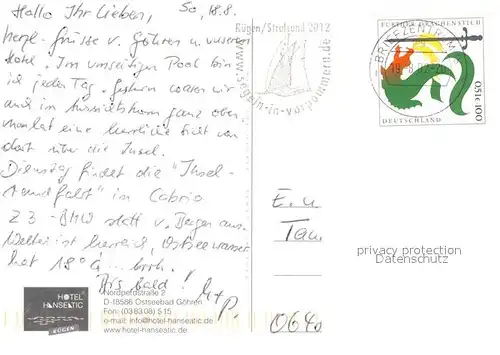 Hallo Ihr Lieben, So, 18.8.
herzl. Grüsse v. Göhren u. unserem
Hotel. Im umseitigen Pool bin
ich jeden Tag, gestern waren wir
auch im Aussichtsturm ganz oben
man hat eine herrliche Sicht von
dort über die Insel.
Dienstag findet die "Insel-
rundfahrt" im Cabrio
Z3-BMW statt v. Bergen aus.
Wetter ist herrlich, Ostseewasser
hat 18° C ... brrh.
Bis bald!
H + P.
HOTEL
HANSEATIC
RÜGEN
Nordperdstraße 2
D-18586 Ostseebad Göhren
Fon: (03 83 08) 5 15
e-mail: info@hotel-hanseatic.de
www.hotel-hanseatic.de
Rügen/Stralsund 2012
www.segeln-in-vorpommern.de
BRIEFZENTRUM
19.8.02-20
FURTHER DRACHENSTICH
0,51€ 100
DEUTSCHLAND
E. u
Tau
privacy protection
Datenschutz
0640